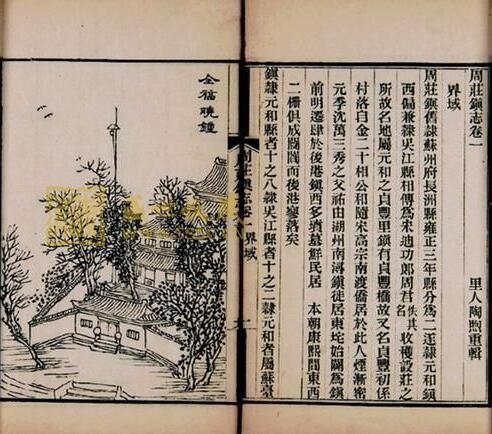 周莊鎮志卷一
里人陶煦重輯
界域
周莊鎮舊隸蘇州府長洲縣雍正三年縣分爲二遂隸元和鎮
西偏兼隸吳江縣相傳爲宋迪功郎周君佚其名收穫設莊之
所故名地屬元和之貞豐里鎮有貞豐橋故又名貞豐初係
村落自金二十相公和隨宋高宗南渡僑居於此人煙漸密
元季沈萬三秀之父祐由湖州南潯鎮徙居東垞始闢爲鎮
前明遷肆於後港鎮西多墳墓鮮民居 本朝康熙間東西
二柵俱成闤闠而後港寥落矣
鎮隸元和縣者十之八隸吳江縣者十之二隸元和者屬蘇臺
周莊鎮志卷一 界域
全福曉鐘